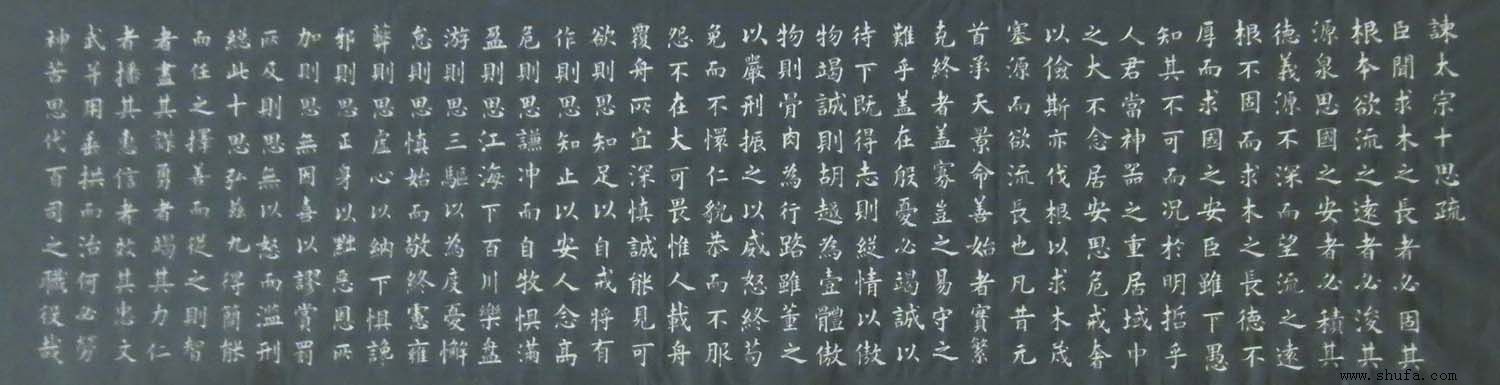 諫太宗十思疏
臣聞求木之長者必固其
根本欲流之遠者必浚其
源泉思國之安者必積其
德義源不深而望流之遠
根不固而求木之長德不
厚而求國之安臣雖下愚
知其不可而況於明哲乎
人君當神器之重居域中
之大不念居安思危戒奢
以儉斯亦伐根以求木茂
塞源而欲流長也凡昔元
首承天景命善始者實繁
克終者蓋寡豈之易守之
難乎蓋在殷憂必竭誠以
待下既得志則縱情以傲
物竭誠則胡越為壹體傲
物則骨肉為行路雖董之
以嚴刑振之以威怒終苟
免而不懷仁貌恭而不服
怨不在大可畏惟人載舟
覆舟所宜深慎誠能見可
欲則思知足以自戒將有
作則思知止以安人念高
危則思謙沖而自牧懼滿
盈則思江海下百川樂盤
游則思三驅以為度憂懈
怠則思慎始而敬終憲雍
則思虛心以納下懼讒
邪則思正身以黜惡恩所
加則思無因喜以謬賞罰
所及則思無以怒而濫刑
總此十思弘茲九得簡能
而任之擇善而從之則智
者盡其謀勇者竭其力仁
者播其惠信者效其忠文
武并用垂拱而治何必勞
神苦思代百司之職役哉
www.shufa.com